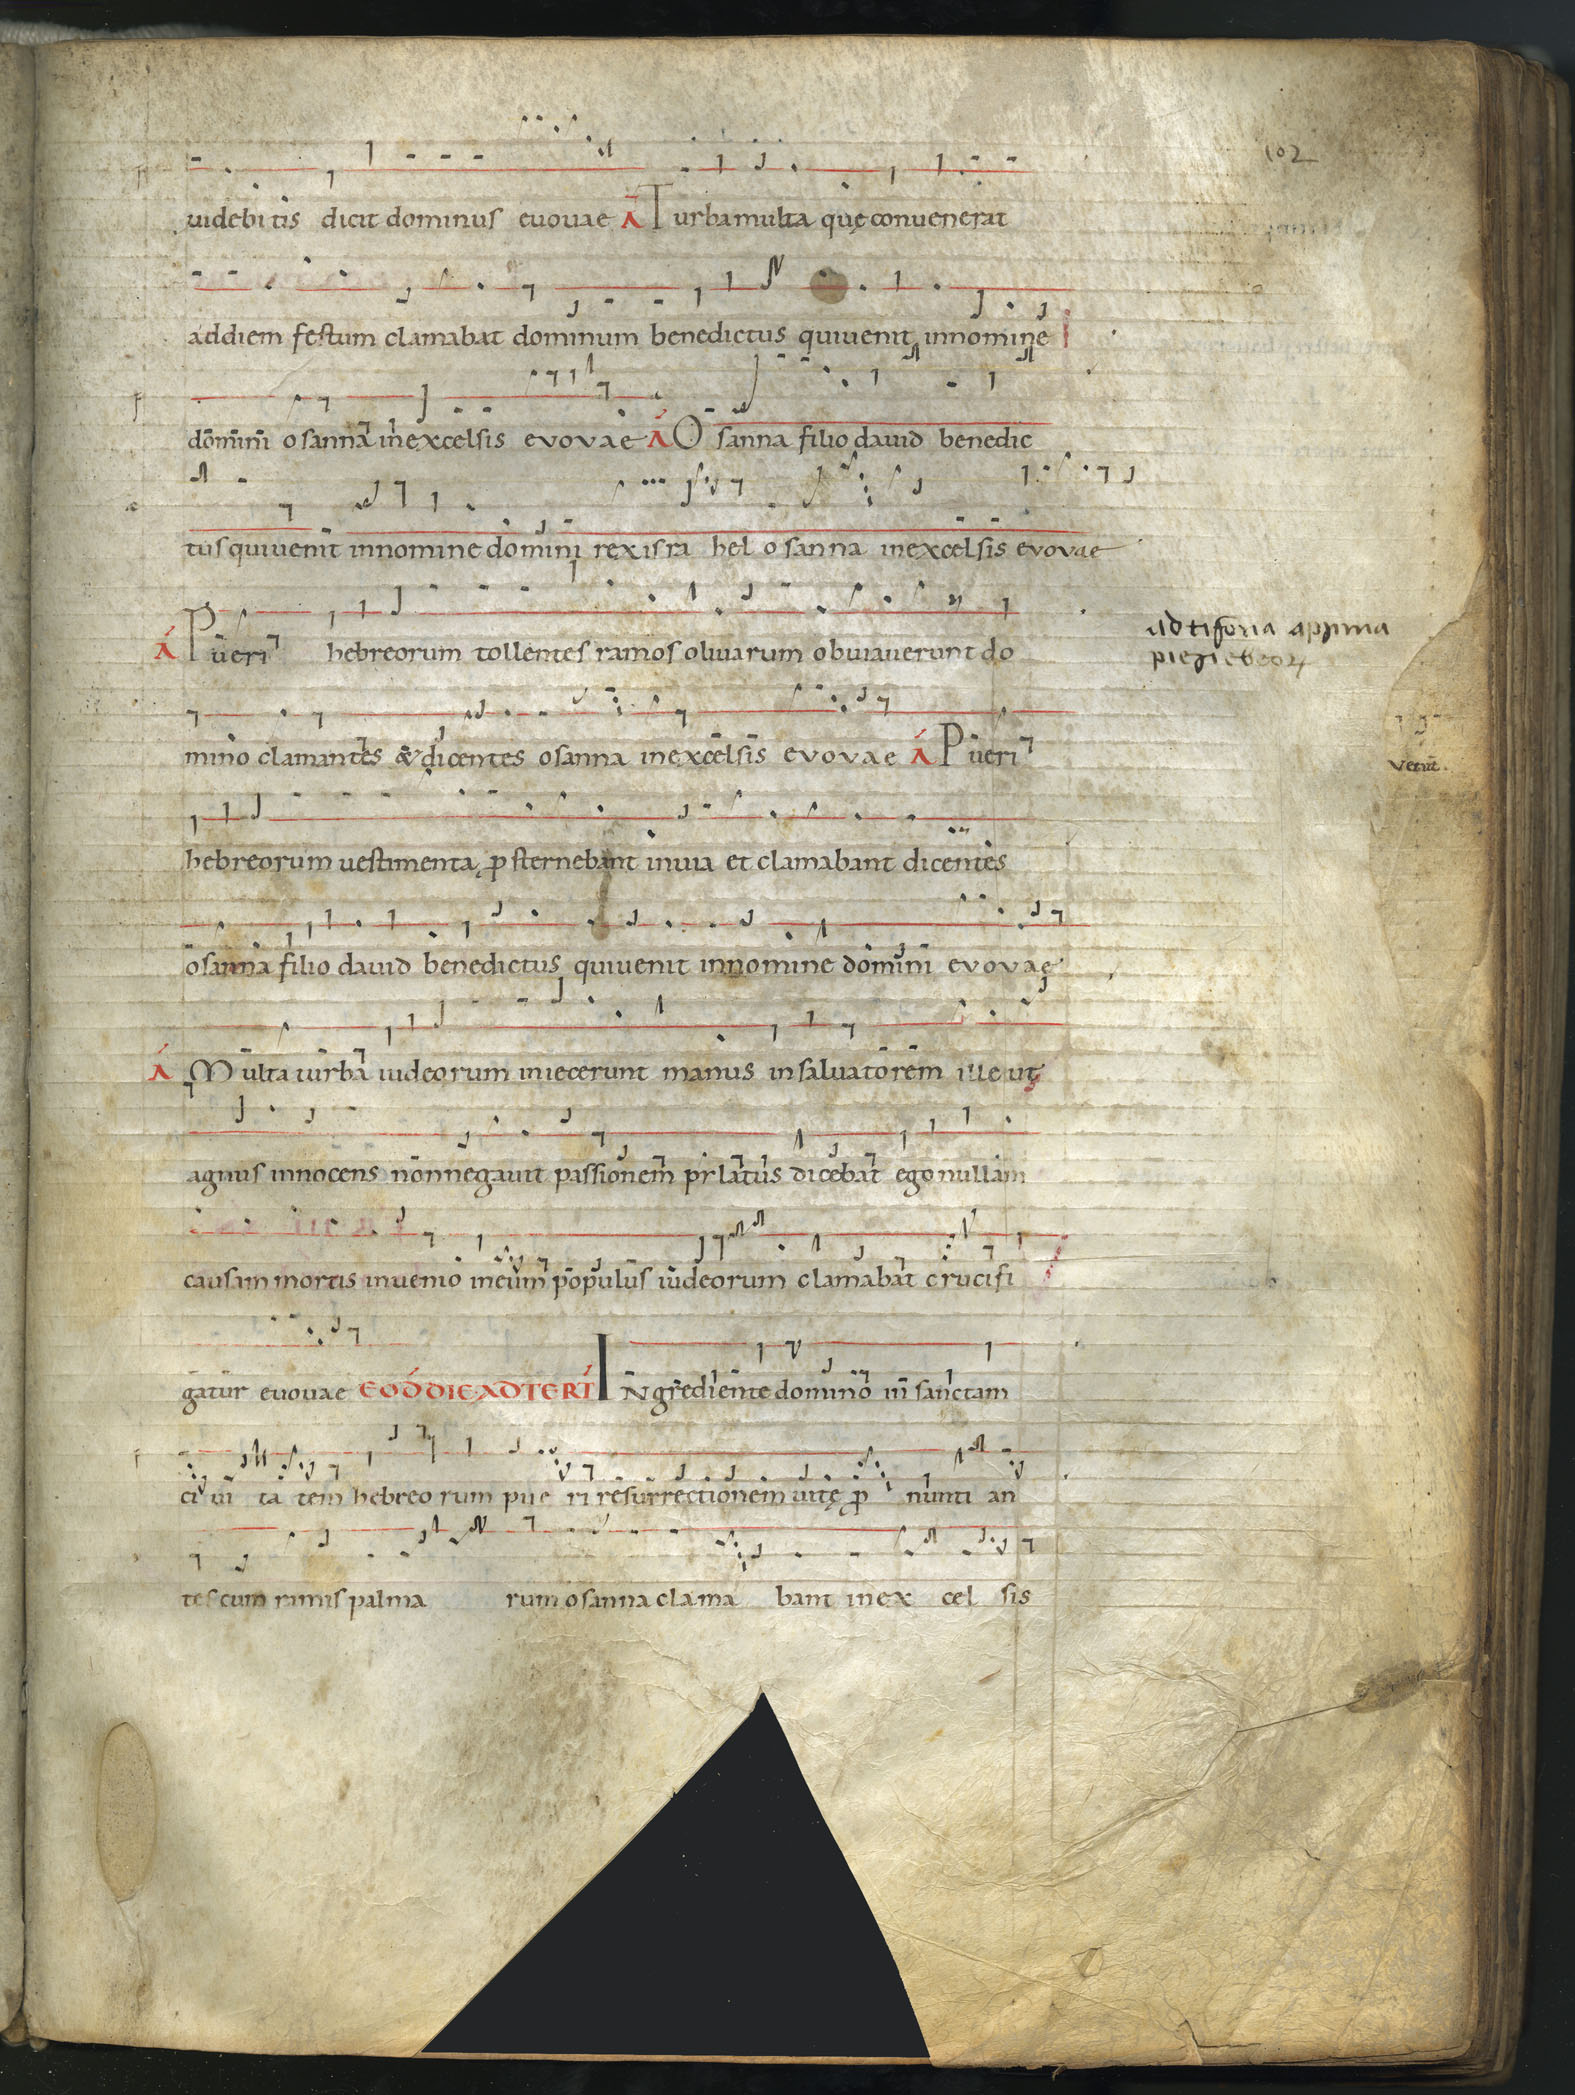 102
uidebitis dicit dominus euouae A Turba multa quę conuenerat
addiem festum clamabat dominum benedictus quiuenit innomine
domini osanna inexcelsis evovae A Osanna filio dauid benedic
tus quiuenit innomine domini rex isra hel osanna inexcelsis evovae
A Pueri hebreorum tollentes ramos oliuarum obuiauerunt do
mino clamantes & dicentes osanna inexcelsis evovae A Pueri
hebreorum uestimenta p sternebant inuia et clamabant dicentes
osanna filio dauid benedictus quiuenit innomine domini evovae
A Multa turba iudeorum iniecerunt manus insaluatorem ille ut
agnus innocens nonnegauit passionem pirlatus dicebat ego nullam
causam mortis inuenio ineum populus iudeorum clamabat crucifi
gatur euouae EOD DIE AD TERT Ingrediente domino in sanctam
ci ui ta tem hebreo rum pue ri resurrectionem uitę p nunti an
tes cum ramis palma rum osanna clama bant inex cel sis